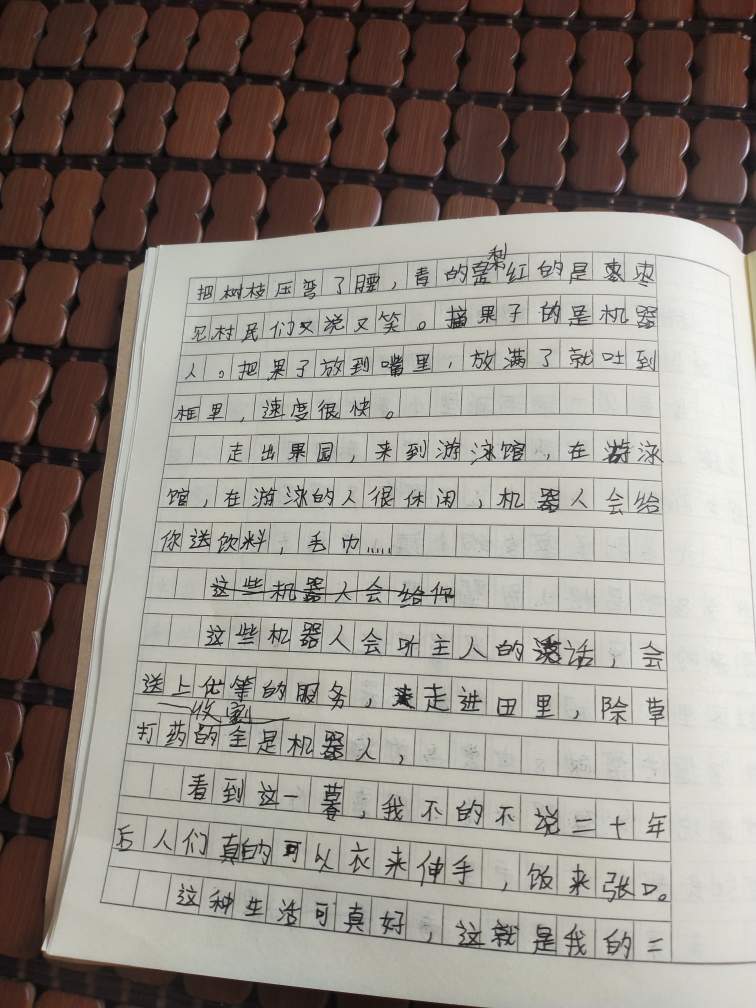 把树枝压弯了腰，青的是梨红的是枣
见村民们又说又笑。摘果子的是机器
人。把果子放到嘴里，放满了就吐到
框里，速度很快。
走出果园，来到游泳馆，在游泳
馆，在游泳的人很休闲，机器人会给
你送饮料，毛巾……
这些机器人会给你
这些机器人会听主人的话，会
送上优等的服务，走进田里，除草
收割
打药的全是机器人，
看到这一暮，我不的不说二十年
后人们真的可以衣来伸手，饭来张口。
这种生活可真好，这就是我的二